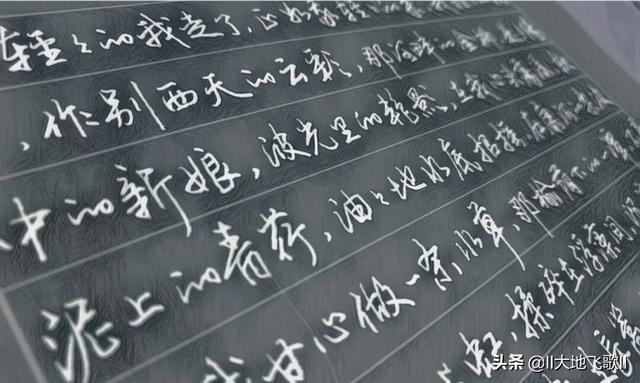 轻々的我走了,正如我轻々的
,作别西天的云彩,那河畔的金柳
中的新娘,波光里的艳影,在我心头荡漾
泥上的青荇,油々地水底招摇,在康河的柔波
我甘心做一条水草,那榆荫下的一潭
虹,揉碎在浮藻间,
头条 @II大地飞歌II